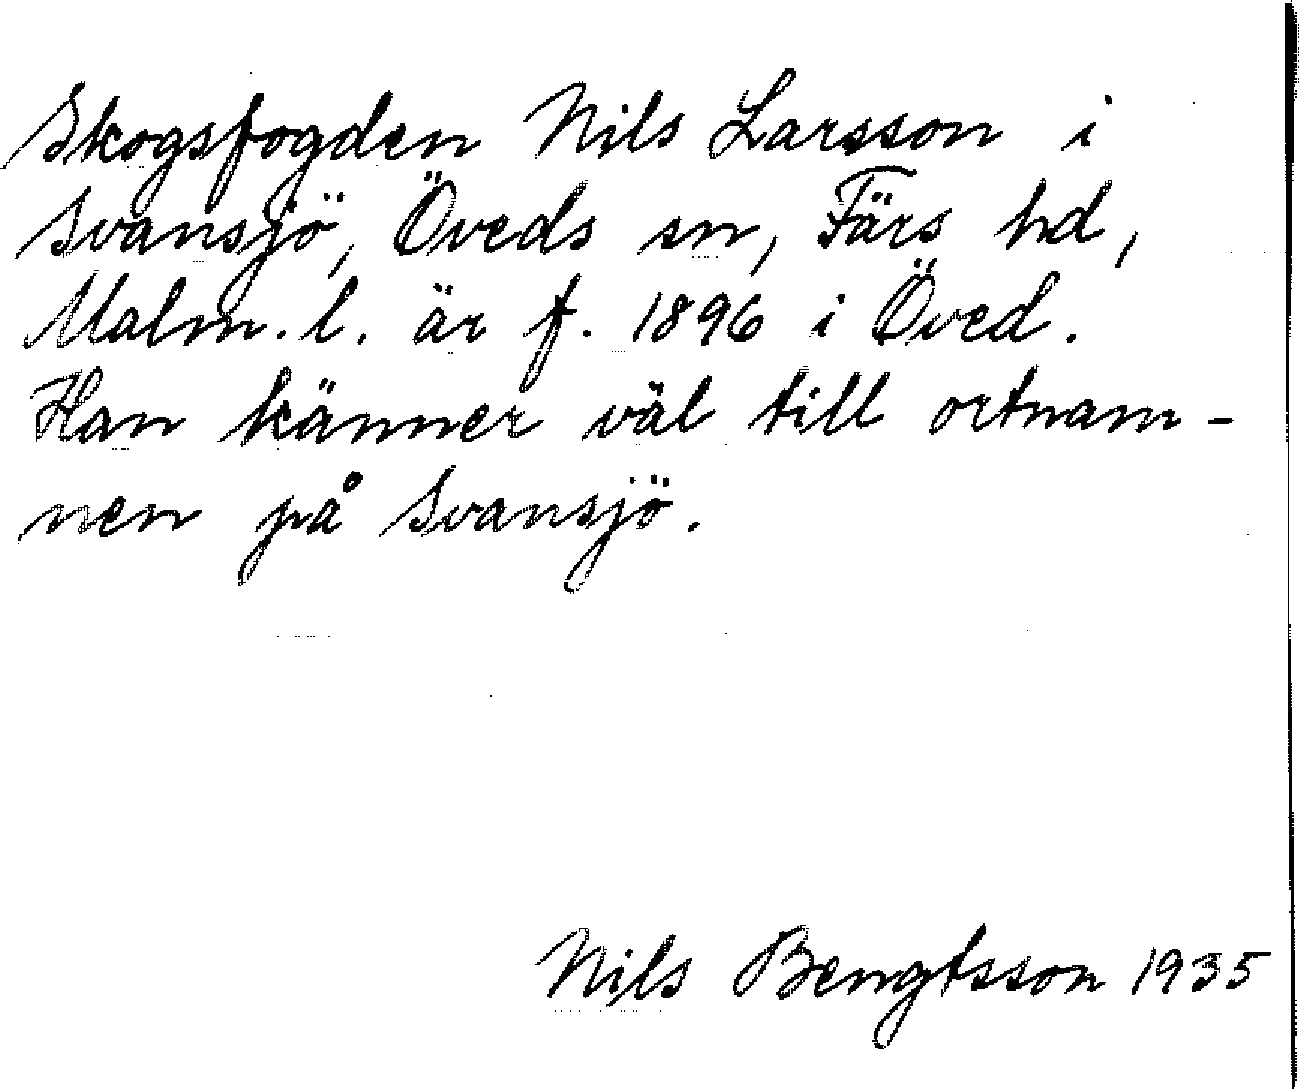 Skogsfogden Nils Larsson i
Svansjö, Öveds sn, Färs hd,
Malm. l. är f. 1896 i Öved.
Han känner väl till ortnam-
nen på Svansjö.
Nils Bengtsson 1935